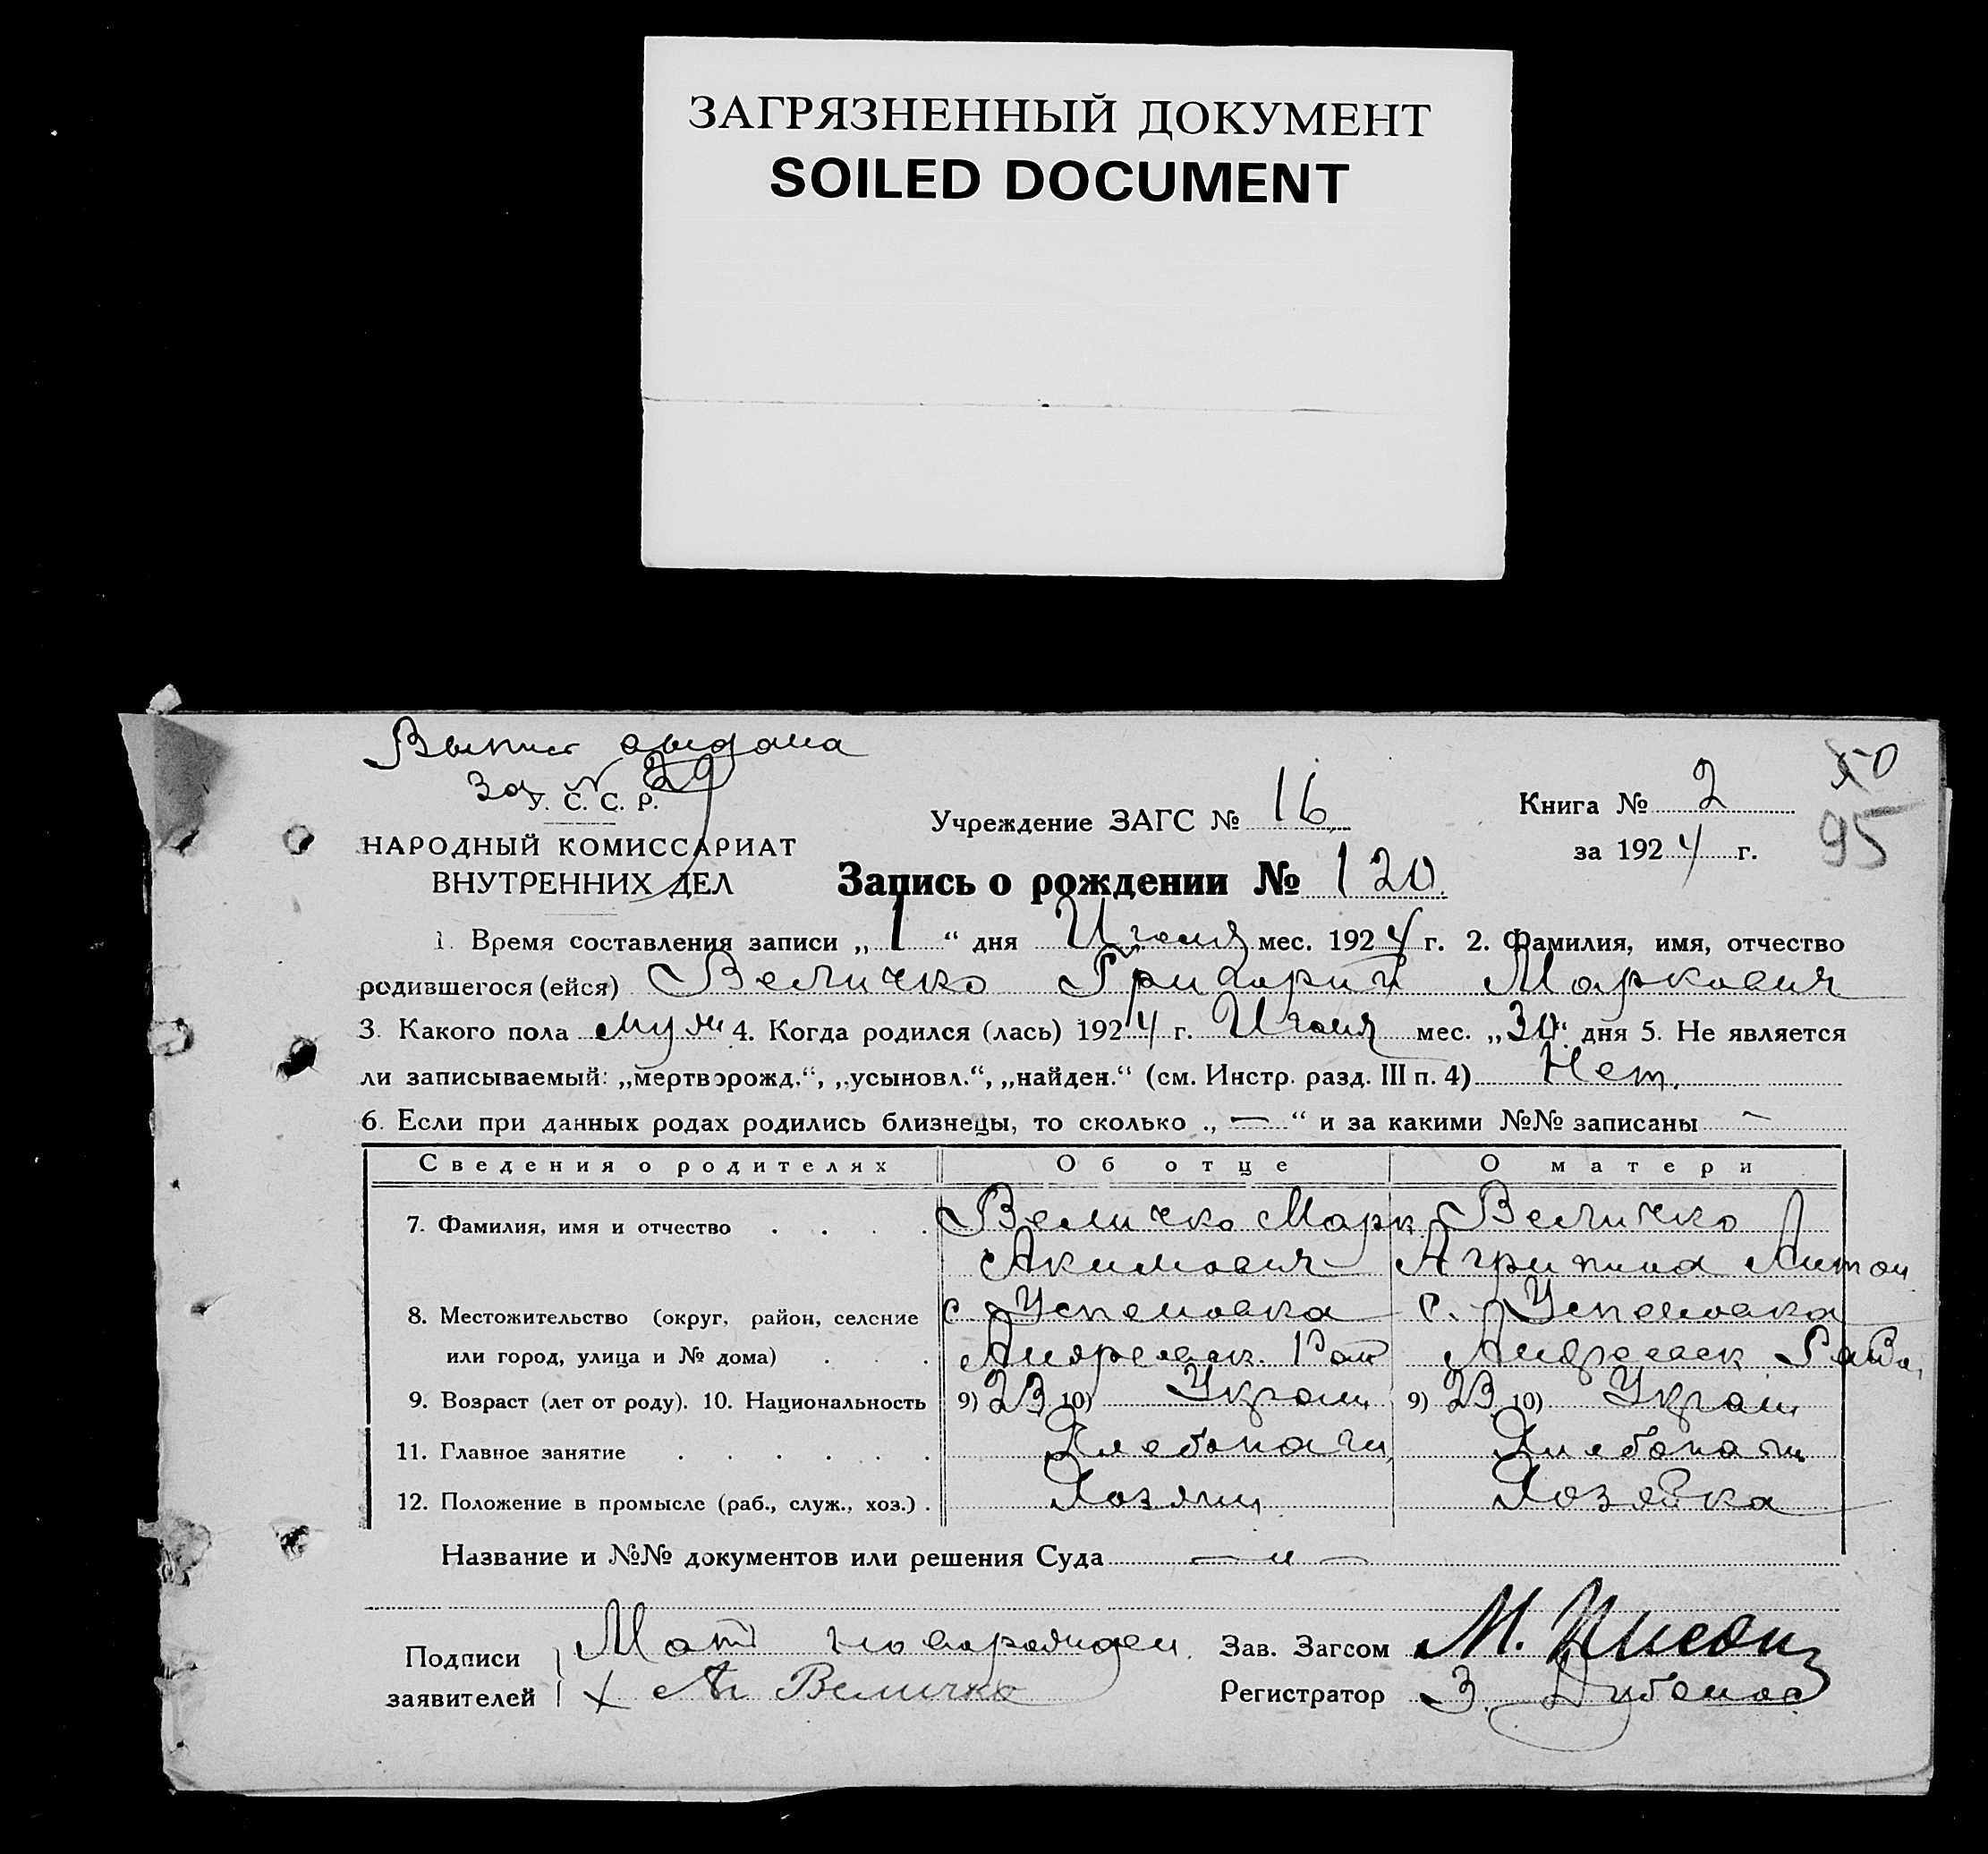 ЗАГРЯЗНЕННЫЙ ДОКУМЕНТ
SOILED DOCUMENT
Выпис выдана
за № 29
У. С. С. Р.
НАРОДНЫЙ КОМИССАРИАТ
ВНУТРЕННИХ ДЕЛ
Учреждение ЗАГС № 16
Книга № 2
50
за 1924 г.
95
Запись о рождении № 120
1. Время составления записи „1“ дня Июля мес. 1924 г. 2. Фамилия, имя, отчество
родившегося (ейся) Величко Григорий Маркович
3. Какого пола муж 4. Когда родился (лась) 1924 г. Июня мес. „30“ дня 5. Не является
ли записываемый: „мертворожд.“, „усыновл.“, „найден.“ (см. Инстр. разд. III п. 4) Нет.
6. Если при данных родах родились близнецы, то сколько „—“ и за какими №№ записаны —
Сведения о родителях Об отце О матери
7. Фамилия, имя и отчество . . . . Величко Марк Величко
Акимович Агрипина Антон
8. Местожительство (округ, район, селение с. Успеновка с. Успеновка
или город, улица и № дома) . . . Андреевск. Рай Андреевск Района
9. Возраст (лет от роду). 10. Национальность 9) 23 10) Украин 9) 23 10) Украин
11. Главное занятие . . . . . . Хлебопаш Хлебопаш
12. Положение в промысле (раб., служ., хоз.) . Хозяин Хозяйка
Название и №№ документов или решения Суда — „ —
Подписи заявителей Мать новорожден.
х Аг Величко
Зав. Загсом М.
Регистратор З.